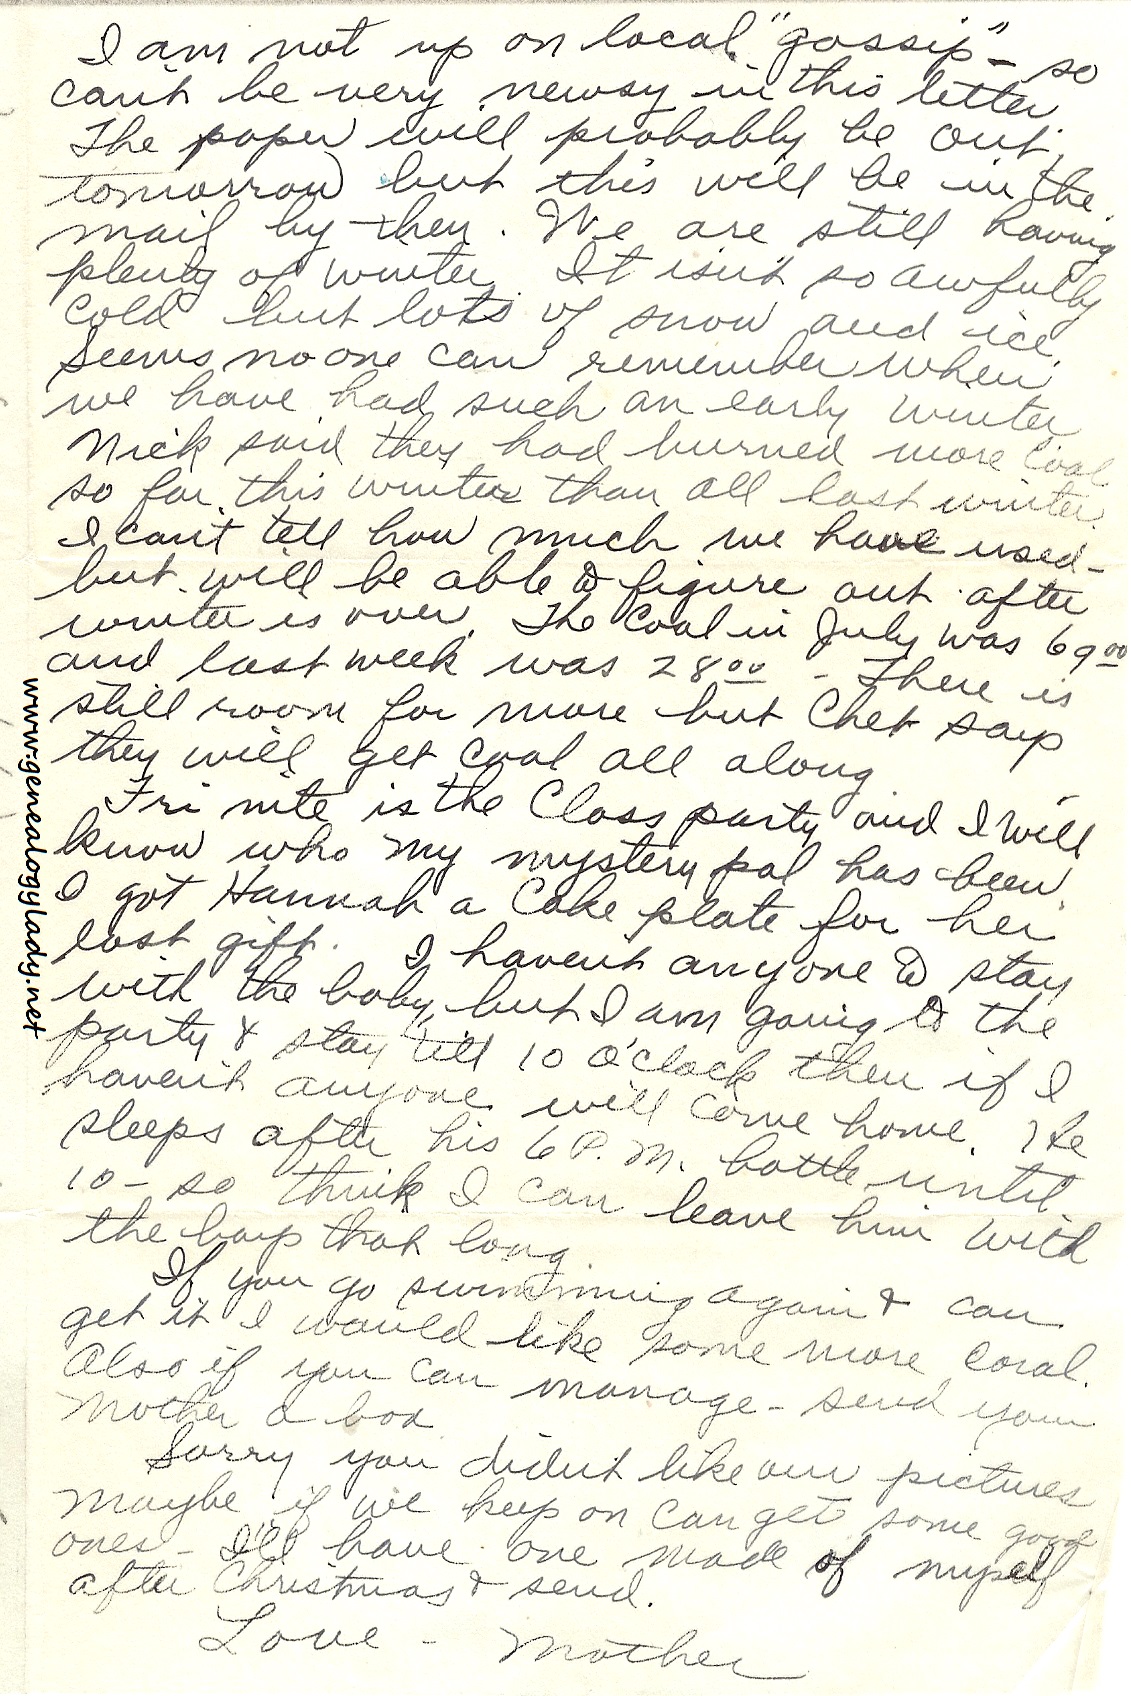 I am not up on local "gossip" - so
can't be very newsy in this letter
The paper will probably be out
tomorrow but this will be in the
mail by then. We are still having
plenty of winter. It isn't so awfully
cold but lots of snow and ice.
Seems no one can remember when
we have had such an early winter
Nick said they had burned more coal
so far this winter than all last winter.
I can't tell how much we have used -
but will be able to figure out after
winter is over. The coal in July was 69.00
and last week was 28.00 - There is
still room for more but Chet says
they will get coal all along
Fri nite is the Class party and I will
know who my mystery pal has been.
I got Hannah a Cake plate for her
last gift. I haven't anyone to stay
with the baby, but I am going to the
party & stay till 10 O'clock then if I
haven't anyone will come home. He
sleeps after his 6 P.M. bottle until
10 - so think I can leave him with
the boys that long
If you go swimming again & can
get it I would like some more coral.
Also if you can manage - send your
Mother a box
Sorry you didn't like our pictures
Maybe if we keep on can get some good
ones - I'll have one made of myself
after Christmas & send.
Love - Mother
www.genealogylady.net